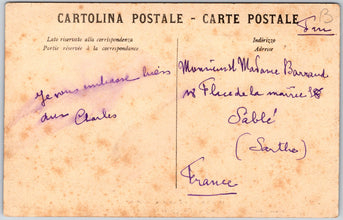 CARTOLINA POSTALE - CARTE POSTALE
Lato riservato alla corrispondenza
Partie réservée à la correspondance
Indirizzo
Adresse
B
Je vous embrasse bien
Charles
Monsieur & Madame Barraud
Place de la mairie
Sablé
(Sarthe)
France